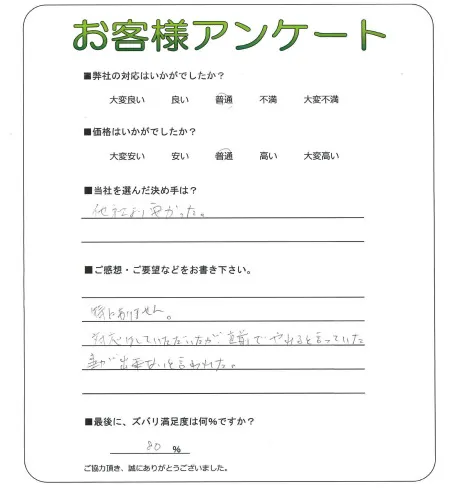 お客様アンケート
■弊社の対応はいかがでしたか？
大変良い 良い 普通 不満 大変不満
■価格はいかがでしたか？
大変安い 安い 普通 高い 大変高い
■当社を選んだ決め手は？
他社より安かった。
■ご感想・ご要望などをお書き下さい。
特にありません。
対応していただいたが、直前でやれると言っていた
事が出来ないと言われた。
■最後に、ズバリ満足度は何％ですか？
80 %
ご協力頂き、誠にありがとうございました。